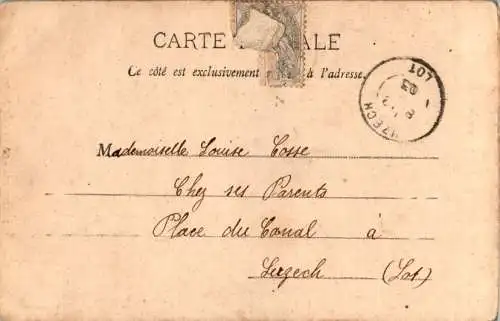 CARTE ALE
Ce côté est exclusivement à l'adresse.
LUZECH LOT
03
Mademoiselle Louise Cosse
Chez ses Parents
Place du Canal à
Luzech (Lot)